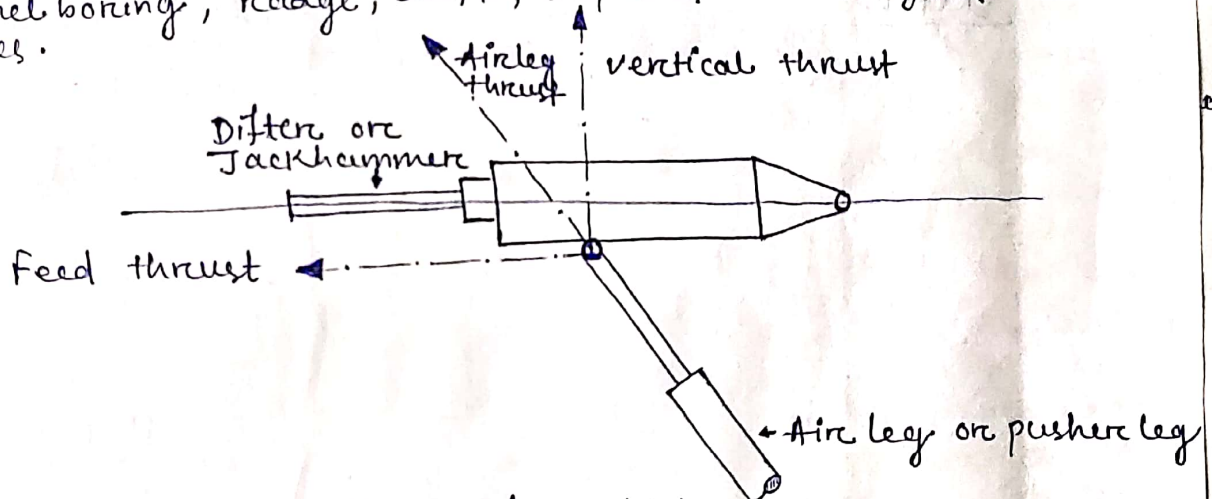 boring,
es.
Airleg
thrust
vertical thrust
Difter or
Jackhammer
Feed thrust
Air leg or pusher leg